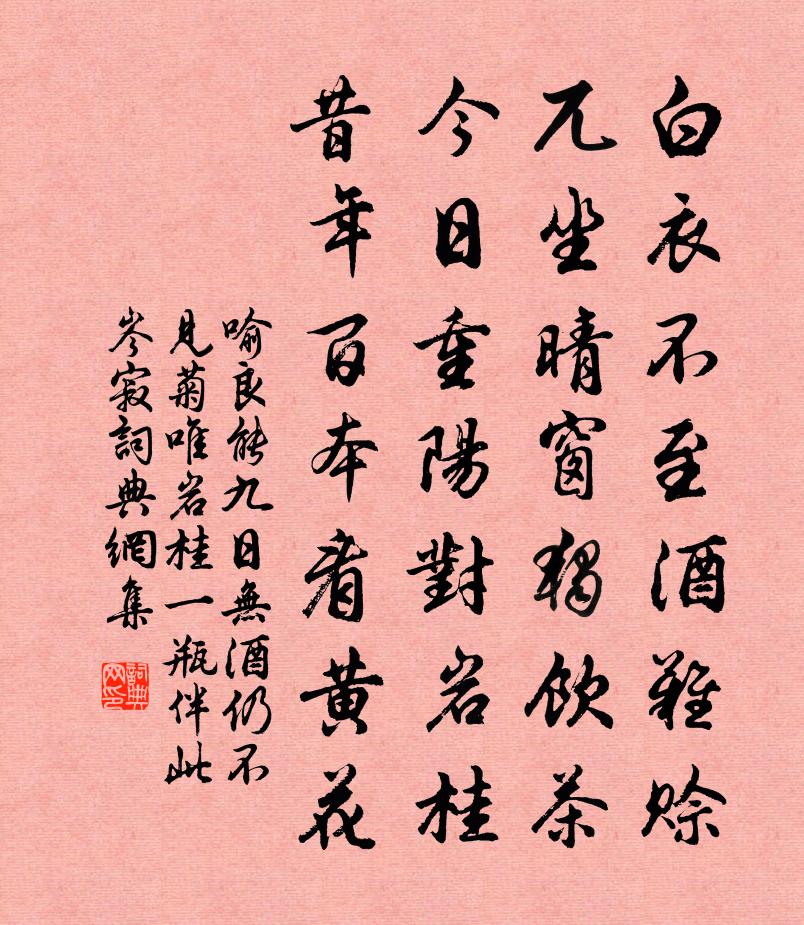 白衣不至酒難賒
兀坐晴窗獨飲茶
今日重陽對岩桂
昔年百本看黃花
喻良能九日無酒仍不
見菊唯岩桂一瓶伴此
岑寂詞典網集
詞典网印